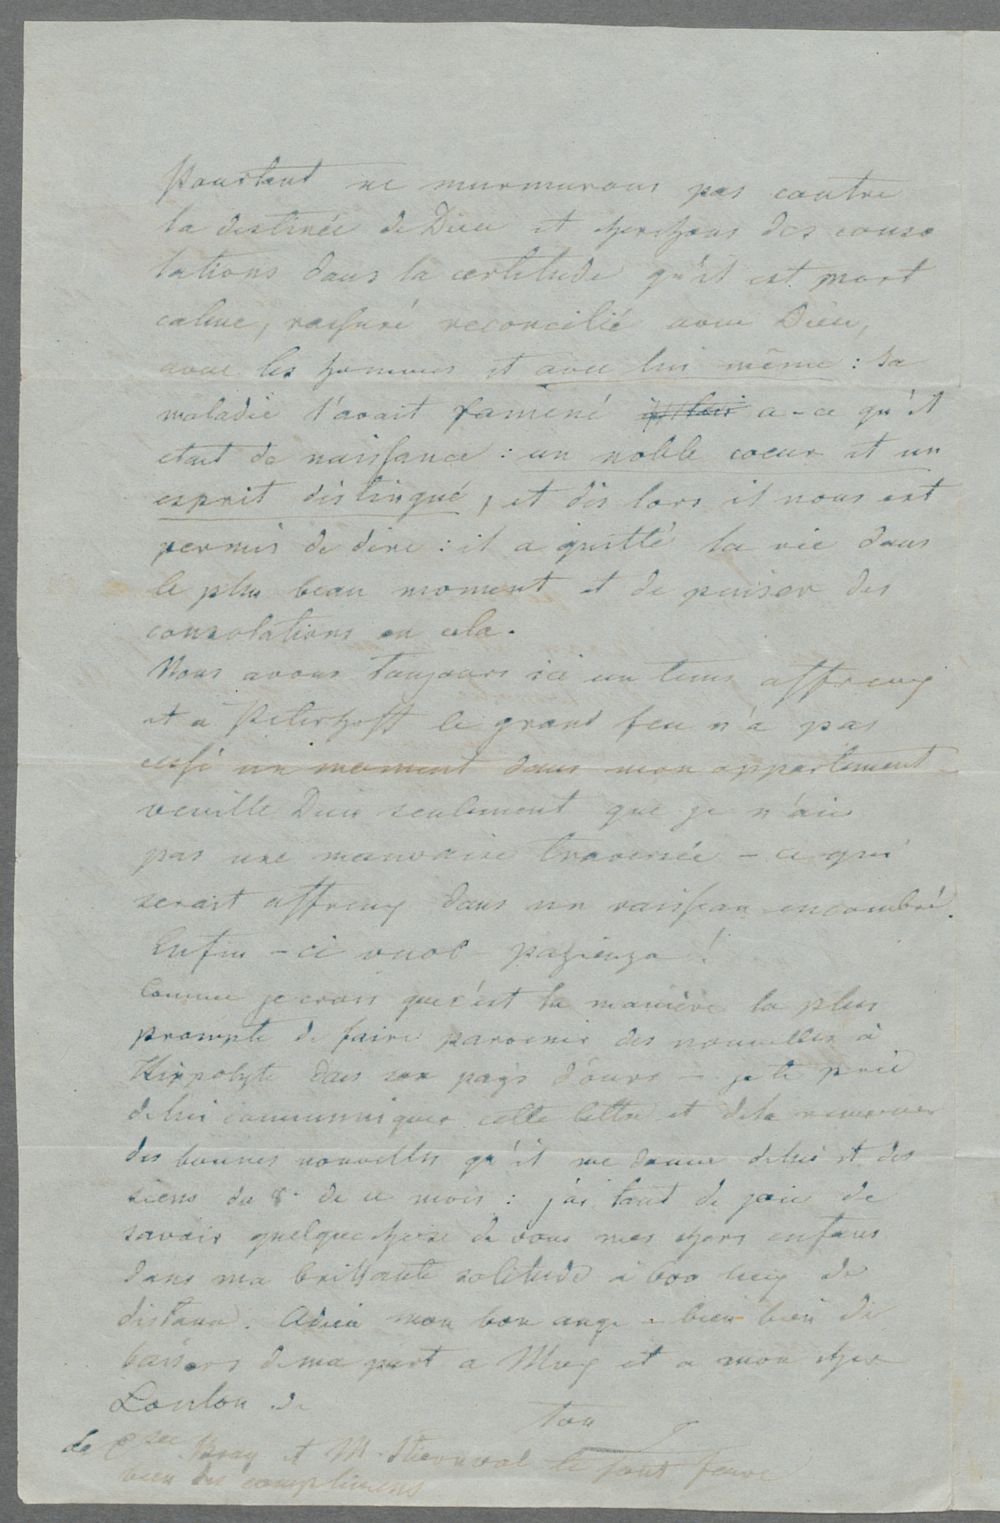 Pourtant ne murmurons pas contre
la destinée de Dieu et cherchons des conso
lations dans la certitude qu'il est mort
calme, rassuré reconcilié avec Dieu,
avec les hommes et avec lui même : sa
maladie l'avait ramené a-ce qu'il
etait de naissance : un noble coeur et un
esprit distingué, et dès lors il nous est
permis de dire : il a quitté la vie dans
le plus beau moment et de puiser des
consolations en cela.
Nous avons toujours ici un tems affreux
et à Peterhoff le grand feu n'a pas
cessé un moment dans mon appartement
veuille Dieu seulement que je n'aie
pas une mauvaise traversée - ce qui
serait affreux dans un vaisseau encombré.
Enfin - ci vuol pazienza !
Comme je crois que c'est la manière la plus
prompte de faire parvenir des nouvelles à
Hippolyte dans son pays d'ours - je te prie
de lui communiquer cette lettre et de le remercier
des bonnes nouvelles qu'il me donne de lui et des
siens du 8. de ce mois : j'ai tant de joie de
savoir quelque chose de vous mes chers enfans
dans ma brillante solitude à 600 lieux de
distance. Adieu mon bon ange - bien bien de
baisers de ma part a Max et a mon cher
Loulou de
ton
La Bray et M. te font faire
bien des complimens